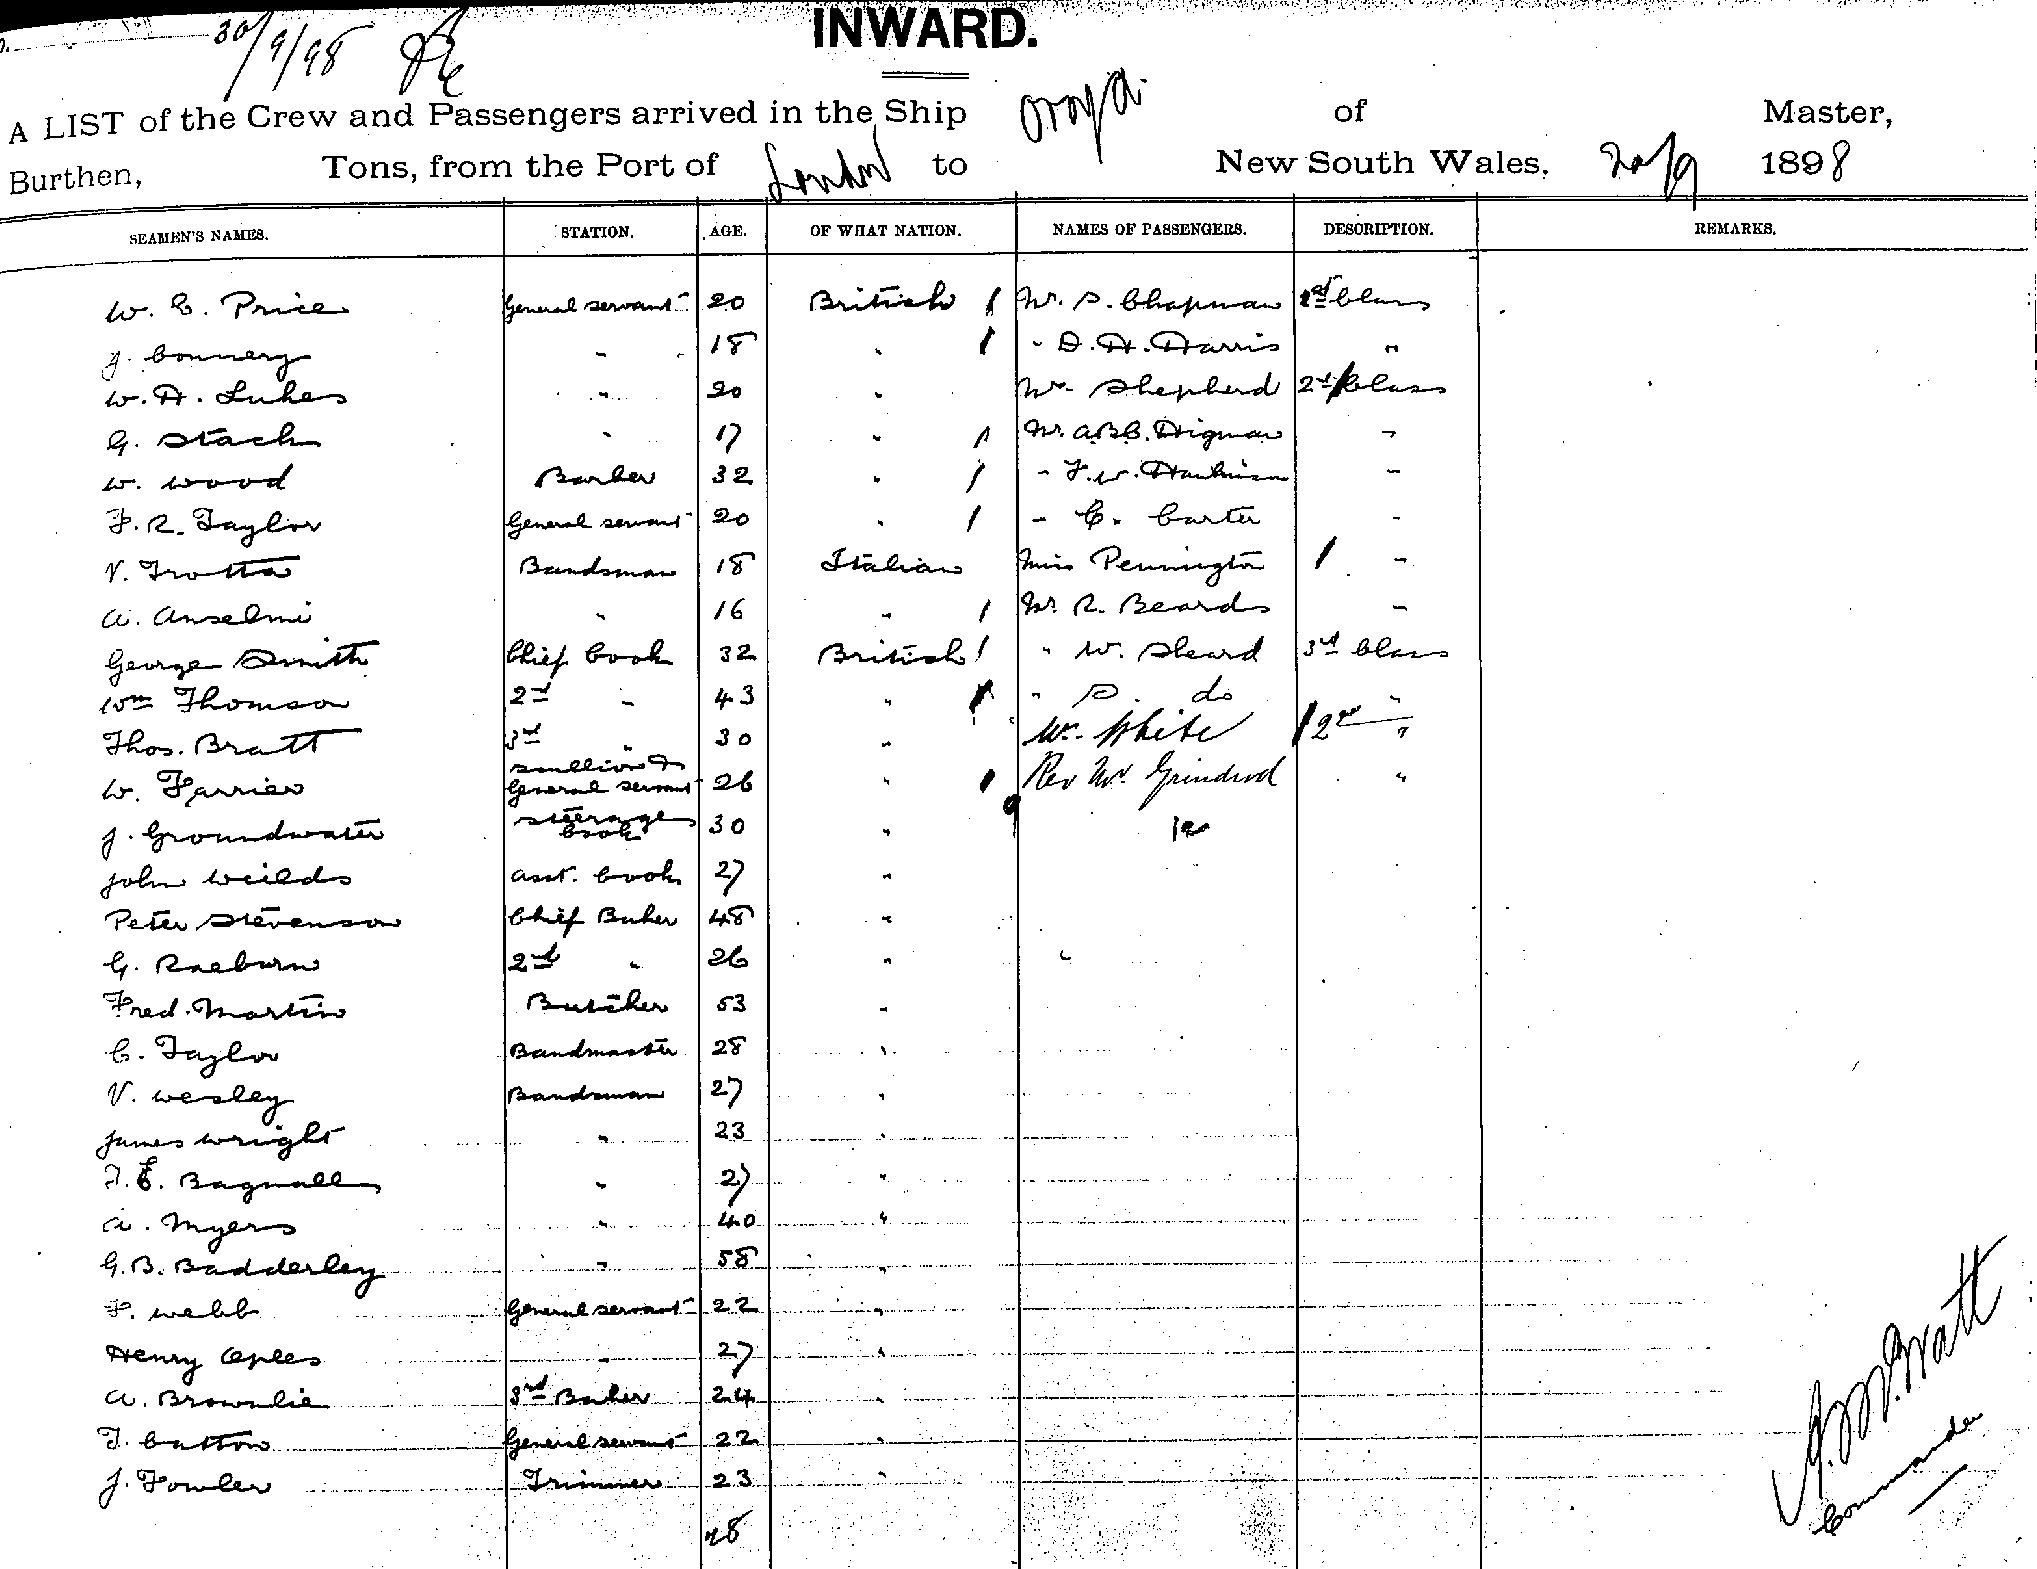 30/9/98
INWARD.
A LIST of the Crew and Passengers arrived in the Ship Oroya of Master,
Burthen, Tons, from the Port of London to New South Wales, 20/9 1898
SEAMEN'S NAMES. STATION. AGE. OF WHAT NATION. NAMES OF PASSENGERS. DESCRIPTION. REMARKS.
W. E. Price General servant 20 British / Mr. S. Chapman 1st Class
J. Connery " 18 " / " D. H. Harris "
W. H. Lukes " 20 " Mr. Shepherd 2nd Class
G. Stach " 17 " / Mr. A.B.C. Higman "
W. Wood Barber 32 " / " F. W. "
F. R. Taylor General servant 20 " / " C. Carter "
V. Trotta Bandsman 18 Italian Miss Pennington / "
A. Anselmi " 16 " / Mr. R. Beards "
George Smith Chief Cook 32 British / " W. Sheard 3rd Class
Wm Thomson 2nd " 43 " / " S. do "
Thos. Bratt 3rd " 30 " Mr. White / 2nd "
W. Farrier Scullion & General servant 26 " / Rev Mr. Grindrod "
J. Groundwater Steerage Cook 30 " 9 12
John Weilds Asst. Cook 27 "
Peter Stevenson Chief Baker 48 "
G. Raeburn 2nd " 26 " "
Fred. Martin Butcher 53 "
C. Taylor Bandmaster 28 "
V. Wesley Bandsman 27 "
James Wright " 23 "
F. E. Bagnall " 27 "
A. Myers " 40 "
G. B. Badderley " 58 "
F. Webb General servant 22 "
Henry Oples " 27 "
A. Brownlie 3rd Baker 24 "
T. Catton General servant 22 "
J. Fowler Trimmer 23 "
28
Commander